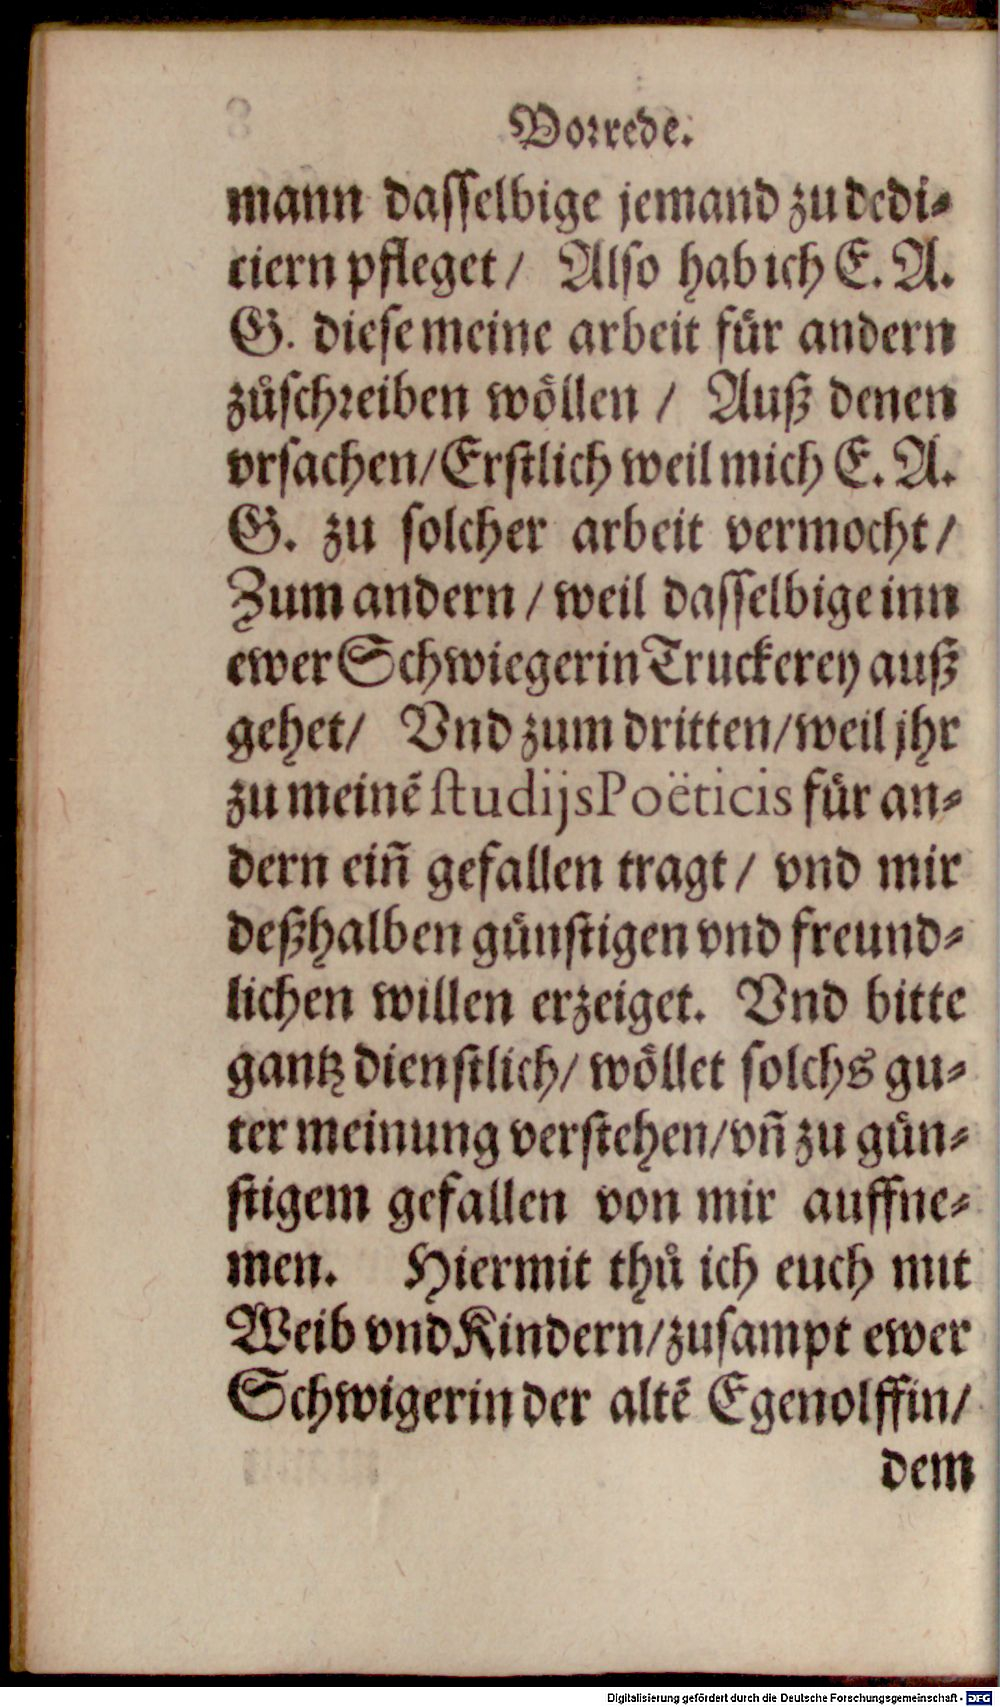 Vorrede.
mann dasselbige jemand zu dedi⸗
ciern pfleget / Also hab ich E. A.
G. diese meine arbeit für andern
zůschreiben wöllen / Auß denen
vrsachen / Erstlich weil mich E. A.
G. zu solcher arbeit vermocht /
Zum andern / weil dasselbige inn
ewer Schwiegerin Truckerey auß
gehet / Vnd zum dritten / weil jhr
zu meinẽ studijs Poëticis für an⸗
dern eiñ gefallen tragt / vnd mir
deßhalben günstigen vnd freund⸗
lichen willen erzeiget. Vnd bitte
gantz dienstlich / wöllet solchs gu⸗
ter meinung verstehen / vñ zu gün⸗
stigem gefallen von mir auffne⸗
men. Hiermit thů ich euch mit
Weib vnd Kindern / zusampt ewer
Schwigerin der altẽ Egenolffin /
dem
Digitalisierung gefördert durch die Deutsche Forschungsgemeinschaft - DFG